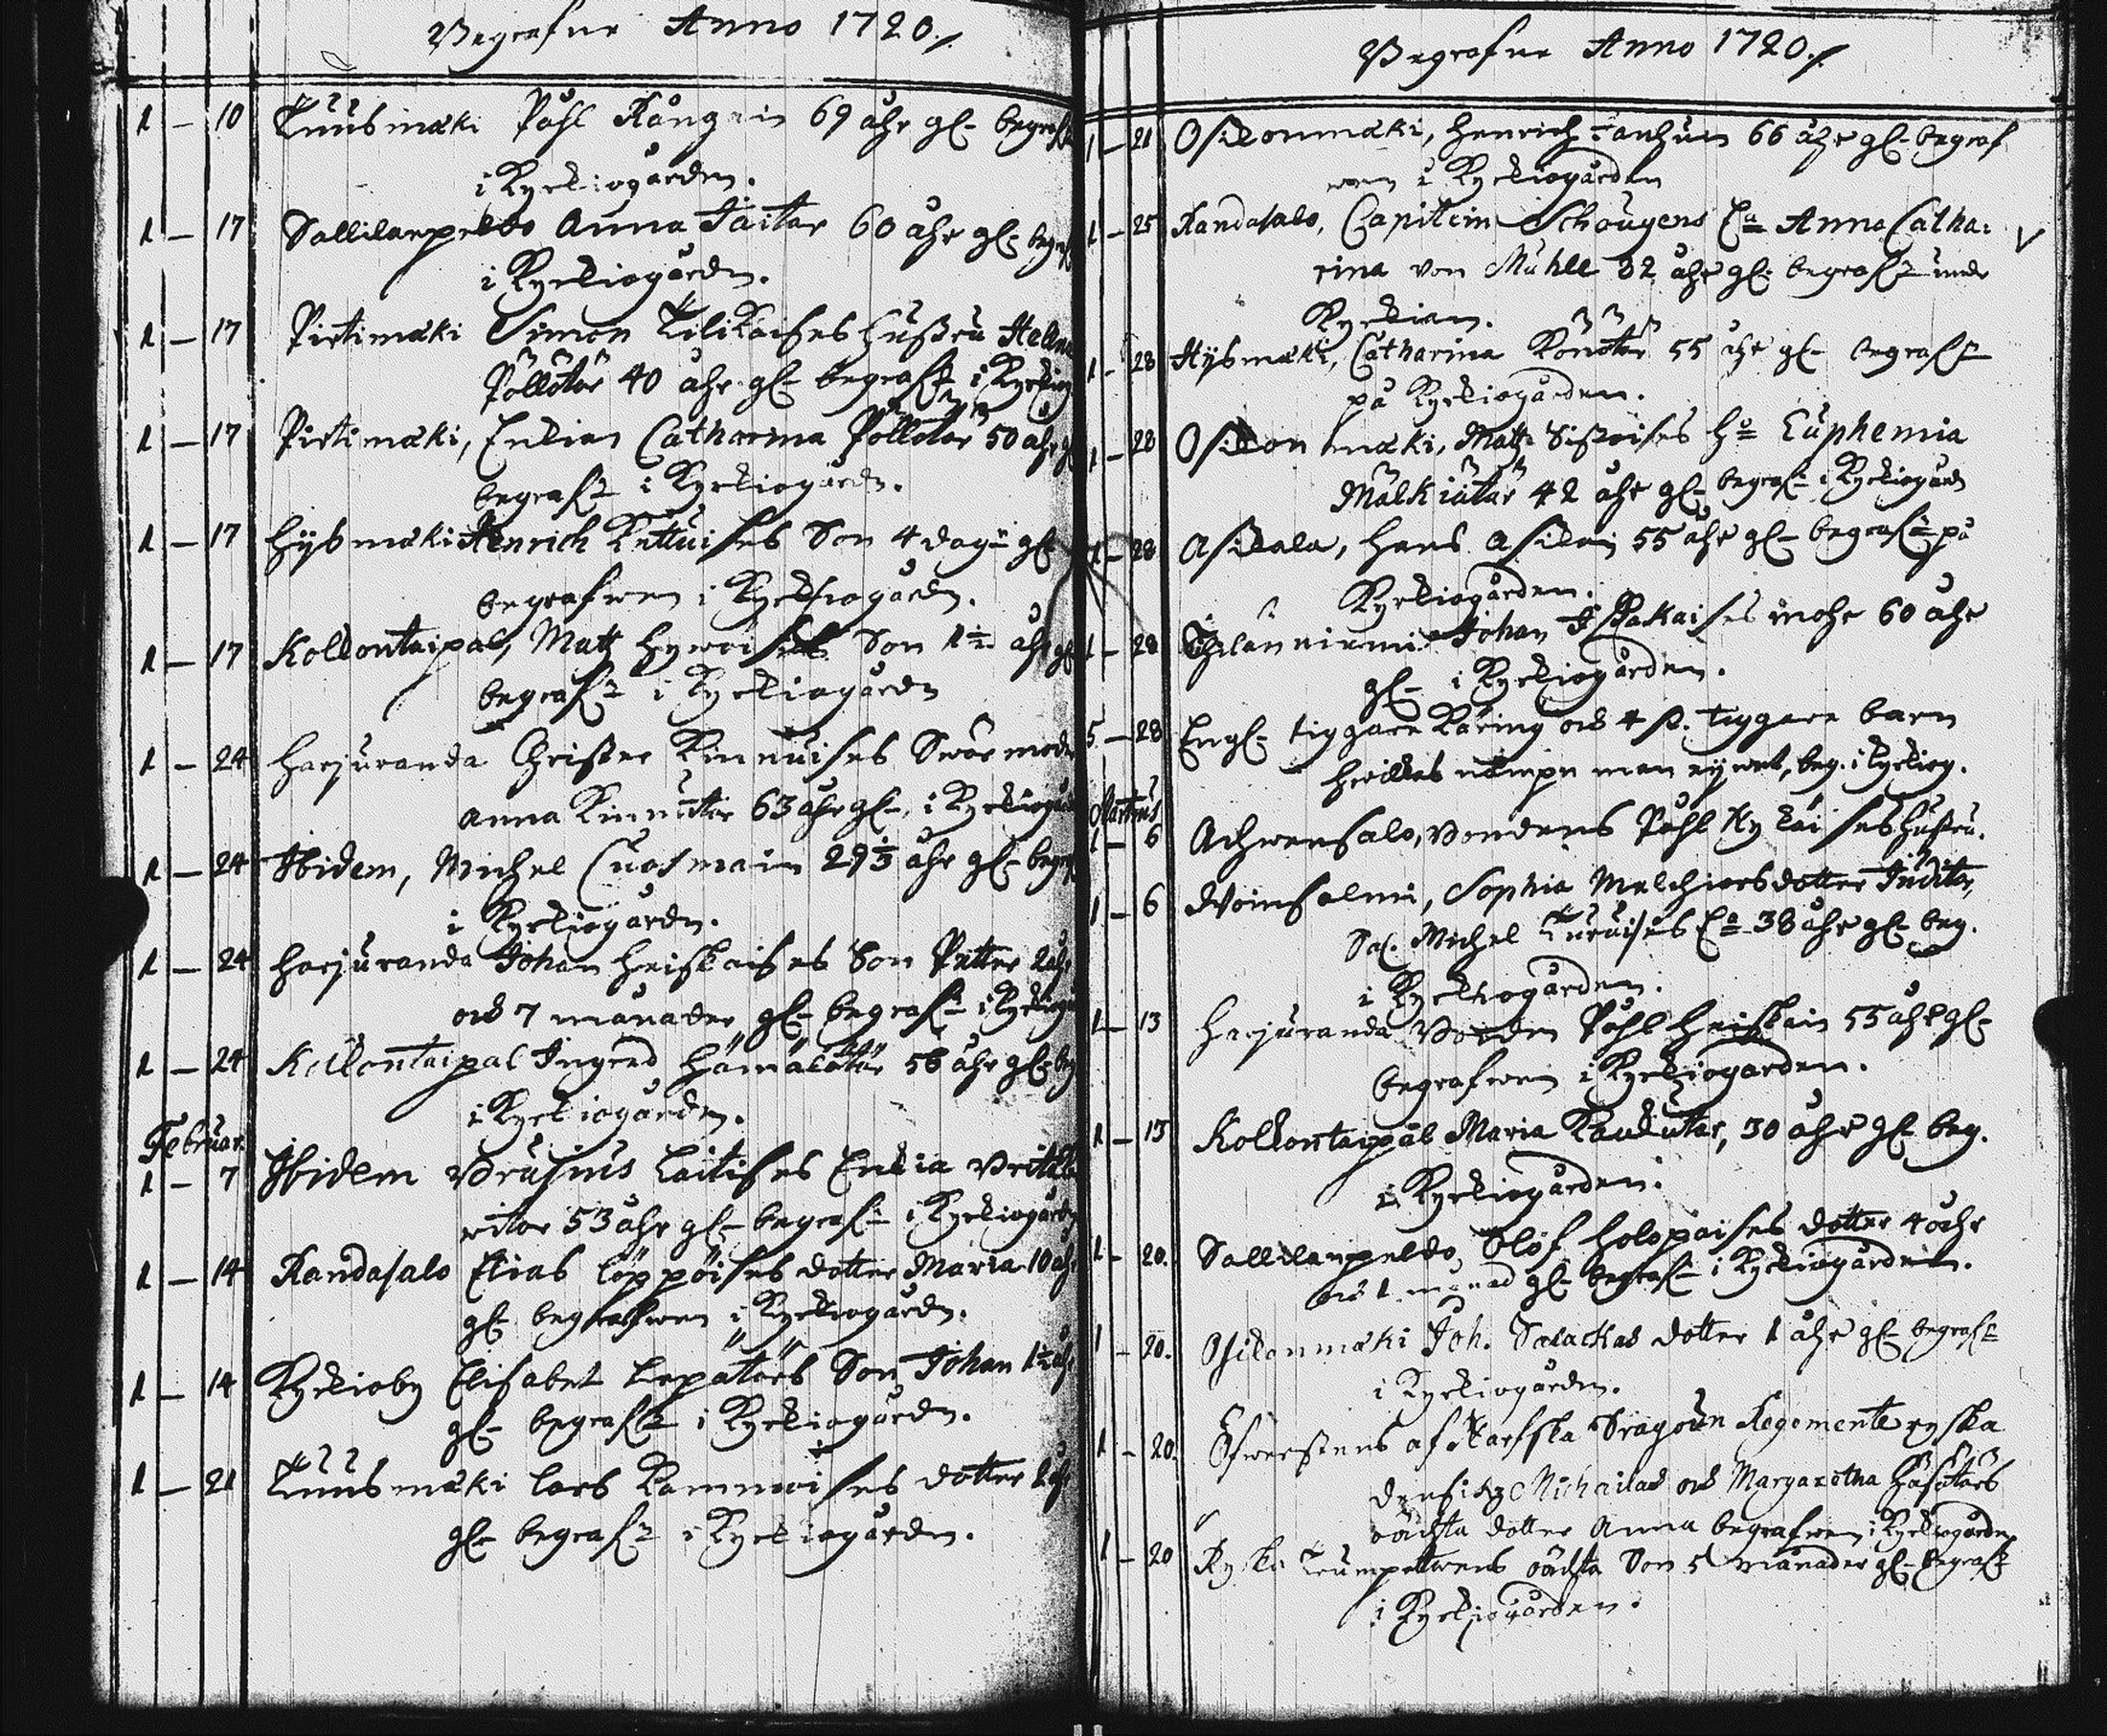 Begrafne Anno 1720./.
1 – 10 Tuusmäki Påhl Kångain 69 åhr gl. begrafn
i Kyrkiogården.
1 – 17 Sallilanpeldo Anna Taitar 60 åhr gl. begraf
i Kyrkiogården.
1 – 17 Pirtimäki Simon Tilikaises hustru Helena
Pöllötär 40 åhr gl. begrafn i Kyrkiog
1 – 17 Pirtimäki, Enkian Catharina Pöllötär 50 åhr g
begrafn i Kyrkiogårdn.
1 – 17 Hysmäki Henrich Kettuises Son 4 dagar gl.
begrafwen i Kyrkiogårdn.
1 – 17 Kolkontaipal, Matz Hyvöises Son 1 åhr gl
begrafn i Kyrkiogårdn
1 – 24 Harjuranda Christer Kinnuises Swärmoder
Anna Kinnutar 63 åhr gl. i Kyrkiogård
1 – 24 Ibidem, Michel Cuosmain 29 1/3 åhr gl. begraf
i Kyrkiogårdn.
1 – 24 Harjuranda Johan Heiskaises Son Petter 2 åhr
och 7 månader gl. begrafn i Kyrkiogå
1 – 24 Kolkontaipal Ingred Hämälätär 56 åhr gl. beg
i Kyrkiogården.
Februar.
1 – 7 Ibidem Brusius Laitises Enkia Brita
ritar 53 åhr gl. begrafn i Kyrkiogårdn
1 – 14 Randasalo Elias Löppöises dotter Maria 10 åhr
gl. begrafwen i Kyrkiogårdn.
1 – 14 Kyrkioby Elisabet Lepätärs Son Johan 1 1/2 åhr
gl. begrafn i Kyrkiogårdn.
1 – 21 Tuusmäki Lars Rammoises dotter 2 åhr
gl. begrafn i Kyrkiogården.
Begrafne Anno 1720./.
1 – 21 Osikonmäki, Henrich Tanhuin 66 åhr gl. begraf
wen i Kyrkiogården
1 – 25 Randasalo, Capitein Schougens Ea Anna Catha:
rina von Mühle 32 åhr gl. begrafn under
Kyrkian.
1 – 28 Hysmäki, Catharina Könötär 55 åhr gl. begrafn
på Kyrkiogården.
1 – 28 Osikonmäki, Matz Sissoises Ho Euphemia
Mälkiätär 42 åhr gl. begrafn i Kyrkiogårdn
1 – 28 Asikala, Hans Asikain 55 åhr gl. begrafn på
Kyrkiogården.
1 – 28 Johan Räkaises moder 60 åhr
gl. i Kyrkiogården.
5 – 28 Engl. tiggare Käring och 4 st. tiggare barn
hvilkas nampn man ey wet, beg. i Kyrkiog.
Martius
1 – 6 Achwensalo, Bondens Påhl Hyköises hustru.
1 – 6 Woinsalmi, Sophia Melchiorsdotter Juditar,
Sal. Michel Turuises Ea 38 åhr gl. beg.
i Kyrkiogården.
1 – 13 Harjuranda Bonden Påhl Heiskain 55 åhr gl.
begrafwen i Kyrkiogården.
1 – 13 Kolkontaipal Maria Laukutar, 30 åhr gl. beg.
i Kyrkiogården.
1 – 20. Sallilanpeldo, Olof Holopaises dotter 4 åhr
och 1 månad gl. begrafn i Kyrkiogården.
1 – 20. Osikonmäki Joh. Salackas dotter 1 åhr gl. begrafn
i Kyrkiogården.
1 – 20. Öfwerstens af Narfska Dragoun Regemente ryska
Michailas och Margaretha Häsätärs
oächta dotter Anna begrafwen i Kyrkiogården
1 – 20 Ryska Trumpetterens oächta Son 5 månader gl. begrafn
i Kyrkiogården.